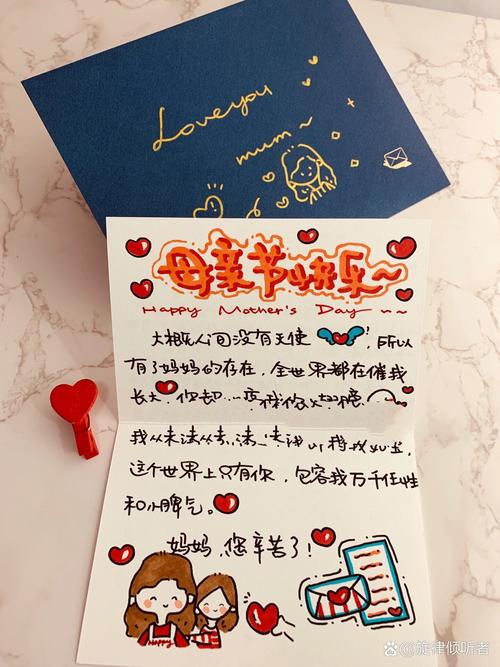 Love you
mum~
母亲节快乐~
Happy Mother's Day ~~
大概人间没有天使 ，所以
有了妈妈的存在，全世界都在催我
长大，你却
我从来
这个世界上只有你，包容我万千任性
和小脾气。
妈妈，您辛苦了！
Happy
旋律倾听者